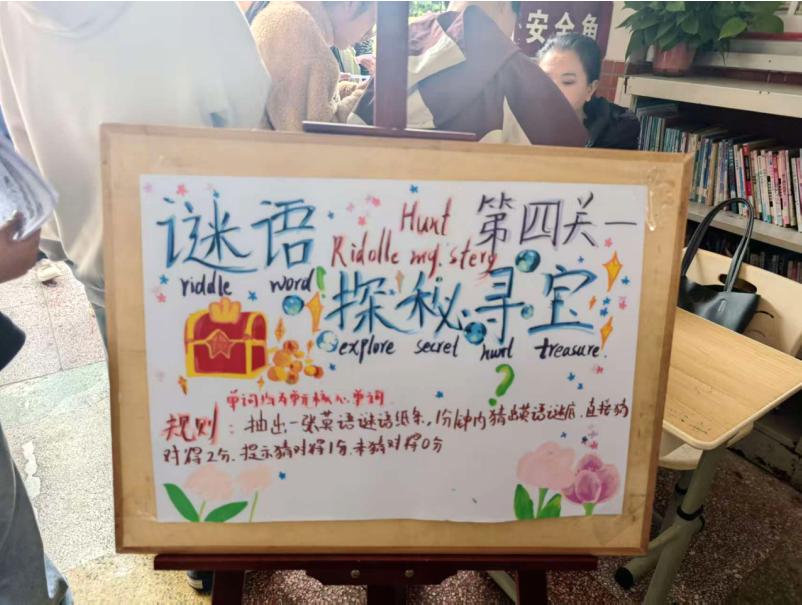 安全角
Hunt
第四关一
谜语
Ridolle my.stery
riddle word
探秘寻宝
explore secret hurt treasure.
单词为本单元核心单词
规则：抽出一张英语谜语纸条，1分钟内猜出英语谜底，直接猜
对得2分．提示猜对得1分．未猜对得0分